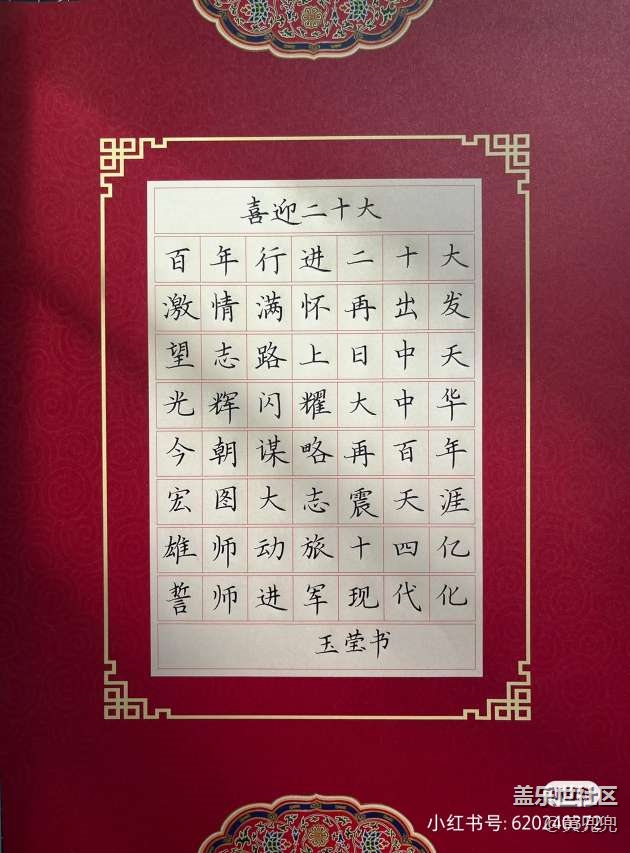 喜迎二十大
百年行进二十大
激情满怀再出发
望志路上日中天
光辉闪耀大中华
今朝谋略再百年
宏图大志震天涯
雄师动旅十四亿
誓师进军现代化
玉莹书
盖乐世社区
小红书号: 620240372